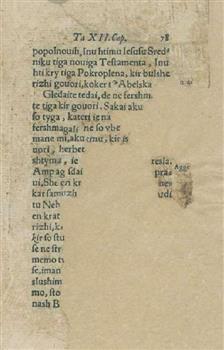 Ta XII. Cap. 78
popolnouih, Inu htimu Iesusu Sred-
niku tiga nouiga Testamenta, Inu
hti kry tiga Pokroplena, kir bulshe
rizhi gouori, koker ta Abelska
Gledaite tedai, de ne fershm
te tiga kir gouori. Sakai aku
so tyga, kateri ie na
fershmagali ne so vbe
mane mi, aku emu, kir is
uori, herbet
shtyma, ie tesla.
Agge
Ampag sdai pra
ui, She en kr nes
kar samuzh udi
tu Neb
en krat
rizhi,
kir so stu
se ne str
memo tv
se, iman
slushim
mo, sto
nash B